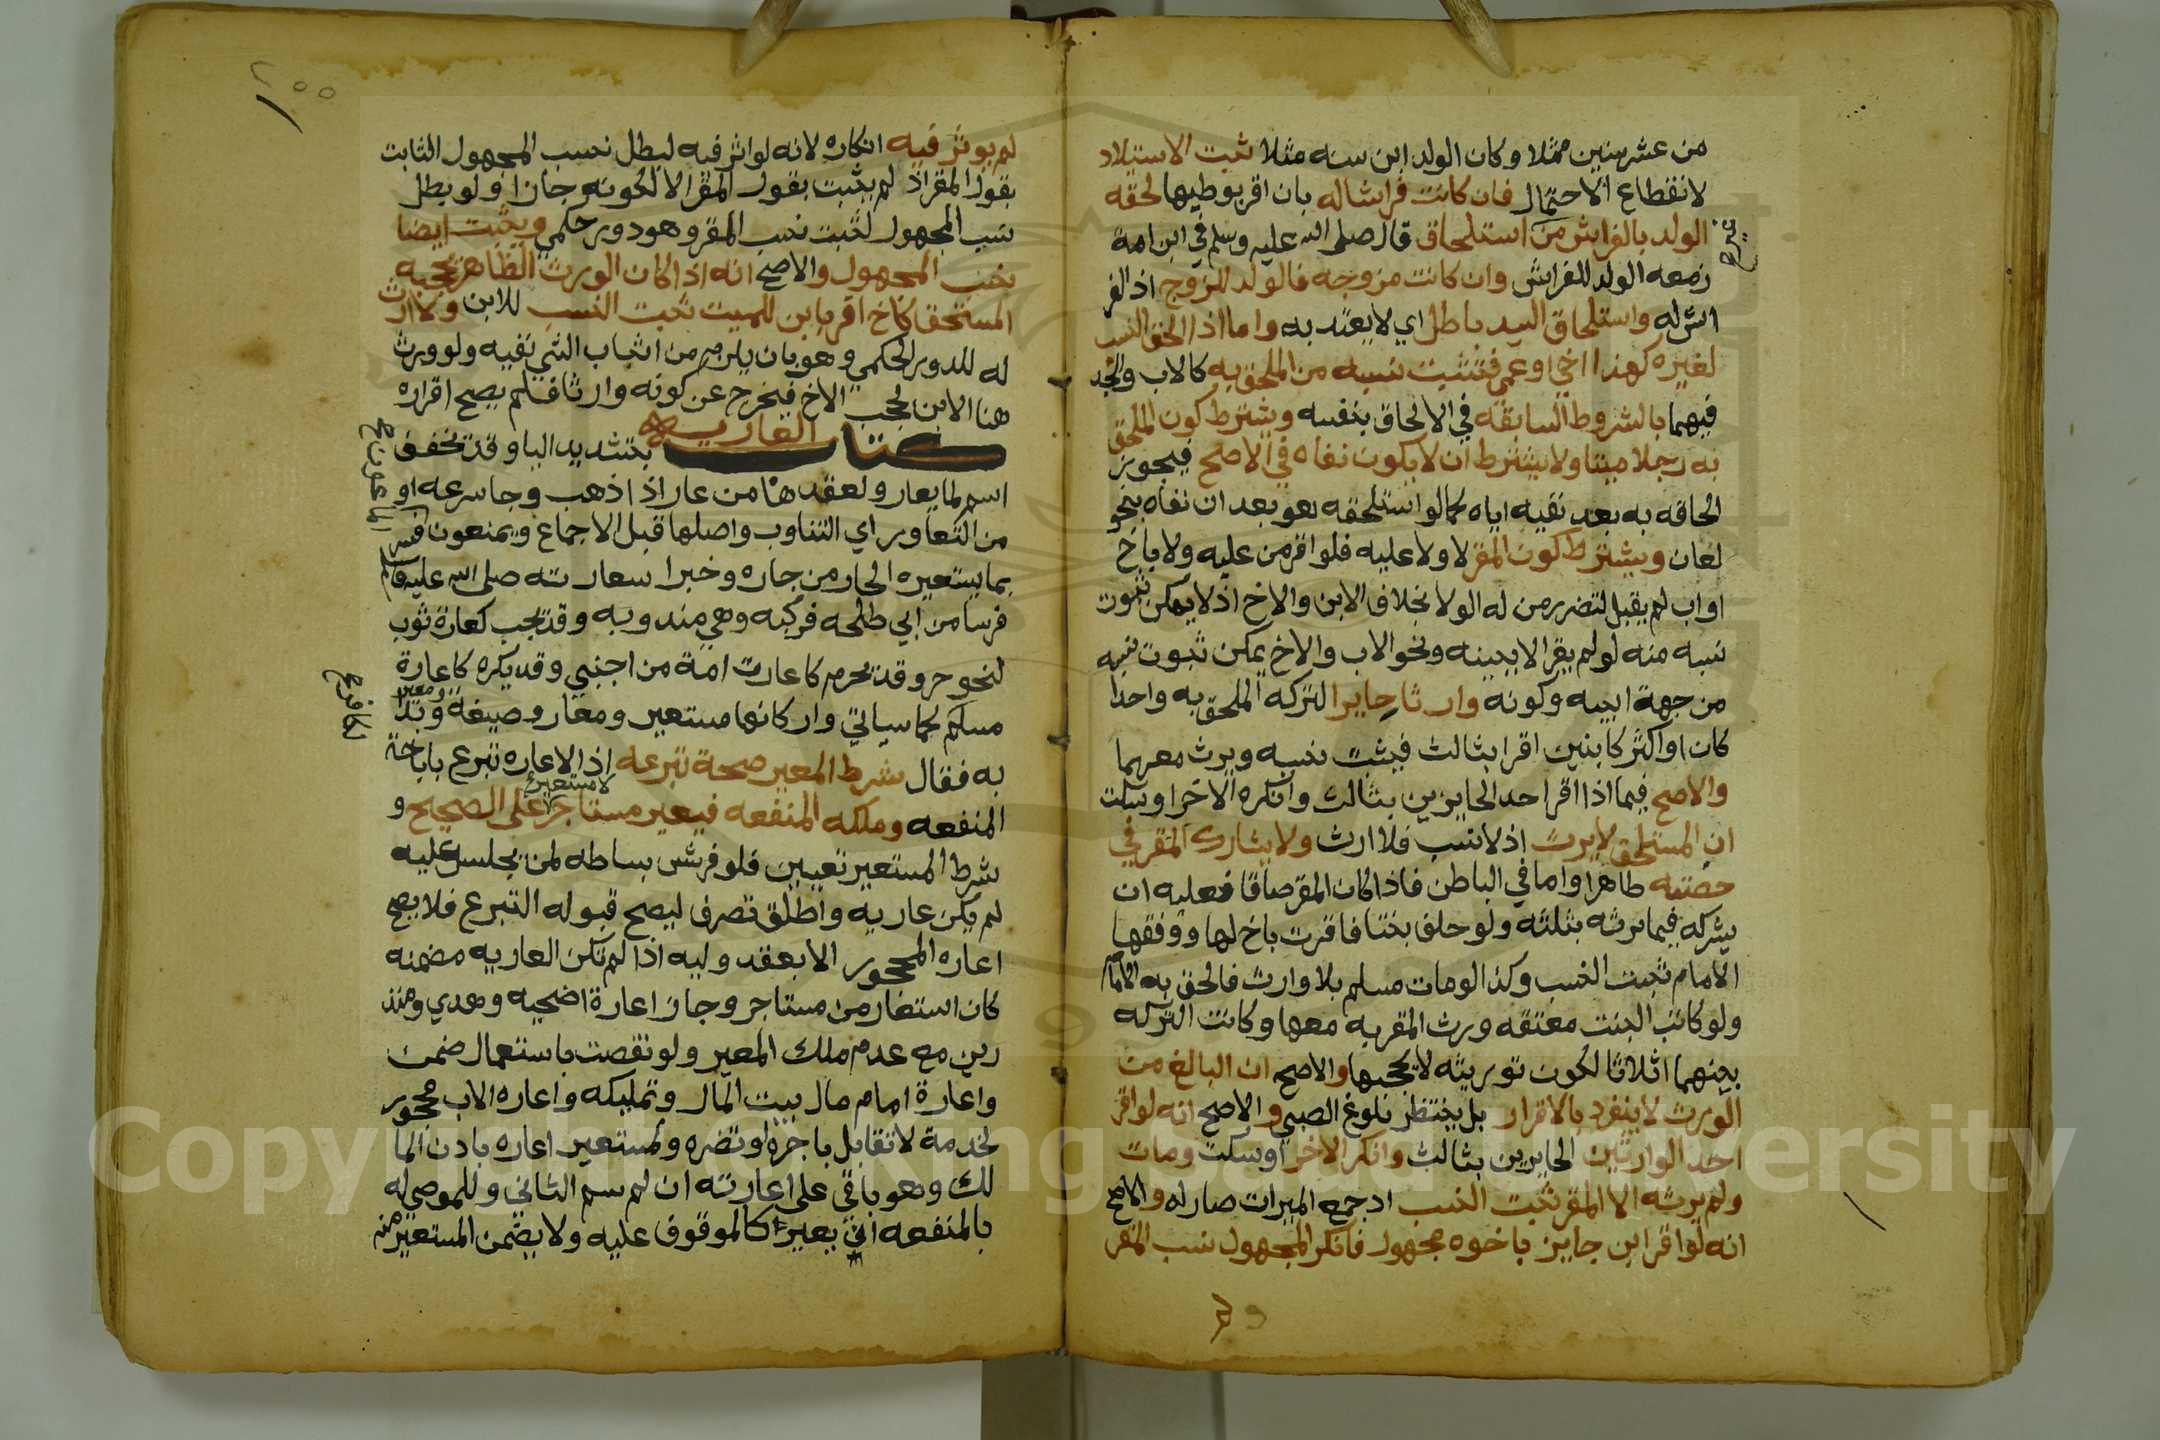 من عشر سنين مثلا وكان الولد ابن سنه مثلا ثبت الاستيلاد
لانقطاع الاحتمال فان كانت فراشا له بان اقر بوطيها لحقه
الولد بالفراش من استلحاق قال صلى الله عليه وسلم في ابن امة
زمعه الولد للفراش وان كانت مزوجه فالولد للزوج اذ الفر
اش له واستلحاق السيد باطل اي لا يعتد به واما اذا الحق النسب
لغيره كهذا اخي او عمي فتثبت نسبه من الملحق به كالاب والجد
فيهما بالشروط السابقه في الالحاق بنفسه ويشترط كون الملحق
به رجلا ميتا ولا يشترط ان لا يكون نفاه في الاصح فيجوز
الحاقه به بعد نفيه اياه كما لو استلحقه هو بعد ان نفاه بنحو
لعان ويشترط كون المقر لا ولا عليه فلو اقر من عليه ولا باخ
او اب لم يقبل لتضرر من له الولا بخلاف الابن والاخ اذ لا يمكن ثبوت
نسبه منه لو لم يقر الا ببينه ونحو الاب والاخ يمكن ثبوت نسبه
من جهة ابيه وكونه وارثا حايرا لتركه الملحق به واحدا
كان او اكثر كابنين اقرا بثالث فيثبت نسبه ويرث معهما
والاصح فيما اذا اقر احد الحايزين بثالث وانكره الاخر او سكت
ان المستلحق لا يرث اذ لا نسب فلا ارث ولا يشارك المقر في
حصته ظاهرا واما في الباطن فاذا كان المقر صادقا فعليه ان
يشركه فيما يرثه بثلثه ولو خلف بنتا فاقرت باخ لها ووفقها
الامام ثبت النسب وكذا لو مات مسلم بلا وارث فالحق به الامام
ولو كانت البنت معتقه ورث المقر به معها وكانت التركه
بينهما اثلاثا لكون توريثه لا يحجبها والاصح ان البالغ من
الورث لا ينفرد بالاقرار بل ينتظر بلوغ الصبي والاصح انه لو اقر
احد الوارثين الحايرين بثالث وانكر الاخر او سكت ومات
ولم يرثه الا المقر ثبت النسب اذ جمع الميراث صار له والاصح
انه لو اقر ابن حايز باخوه مجهول فانكر المجهول نسب المقر
لم يوثر فيه انكاره لانه لو اثر فيه لبطل نسب المجهول الثابت
بقول المقر اذ لم يثبت بقول المقر الا لكونه حايزا ولو بطل
نسب المجهول لثبت نسب المقر وهو دور حكمي ويثبت ايضا
نسب المجهول والاصح انه اذا كان الورث الظاهر يحجبه
المستحق كاخ اقر بابن للميت ثبت النسب للابن ولا ارث
له للدور الحكمي وهو بان يلزم من اثبات الشي نفيه ولو ورث
هنا الابن لحجب الاخ فيخرج عن كونه وارثا فلم يصح اقراره
كتاب العاريه بتشديد اليا وقد تخفف
اسم لما يعار ولعقدها من عار اذا ذهب وجا سرعه او
من التعاور اي التناوب واصلها قبل الاجماع ويمنعون فسر
بما يستعيره الجار من جاره وخبر استعارته صلى الله عليه وسلم
فرسا من ابي طلحه فركبه وهي مندوبه وقد تجب كعارة ثوب
لنحو حر وقد تحرم كاعارت امة من اجنبي وقد يكره كاعارة
مسلم كما سياتي واركانها مستعير ومعار وصيغة ومعير وبدا
به فقال شرط المعير صحة تبرعه اذ الاعاره تبرع باباحة
المنفعه وملكه المنفعه فيعير مستاجر لا مستعير على الصحيح و
شرط المستعير تعيين فلو فرش بساطه لمن يجلس عليه
لم يكن عاريه واطلق تصرف ليصح قبوله التبرع فلا يصح
اعاره المحجور الا بعقد وليه اذا لم تكن العاريه مضمنه
كان استعار من مستاجر وجاز اعارة اضحيه وهدي ومنذ
ورين مع عدم ملك المعير ولو نقصت باستعمال ضمن
واعارة امام مال بيت المال وتمليكه واعاره الاب محجور
لخدمة لا تقابل باجره او تضره ولمستعير اعاره باذن الما
لك وهو باقي على اعارته ان لم يسم الثاني وللموصى له
بالمنفعه ان يعير كالموقوف عليه ولا يضمن المستعير منه